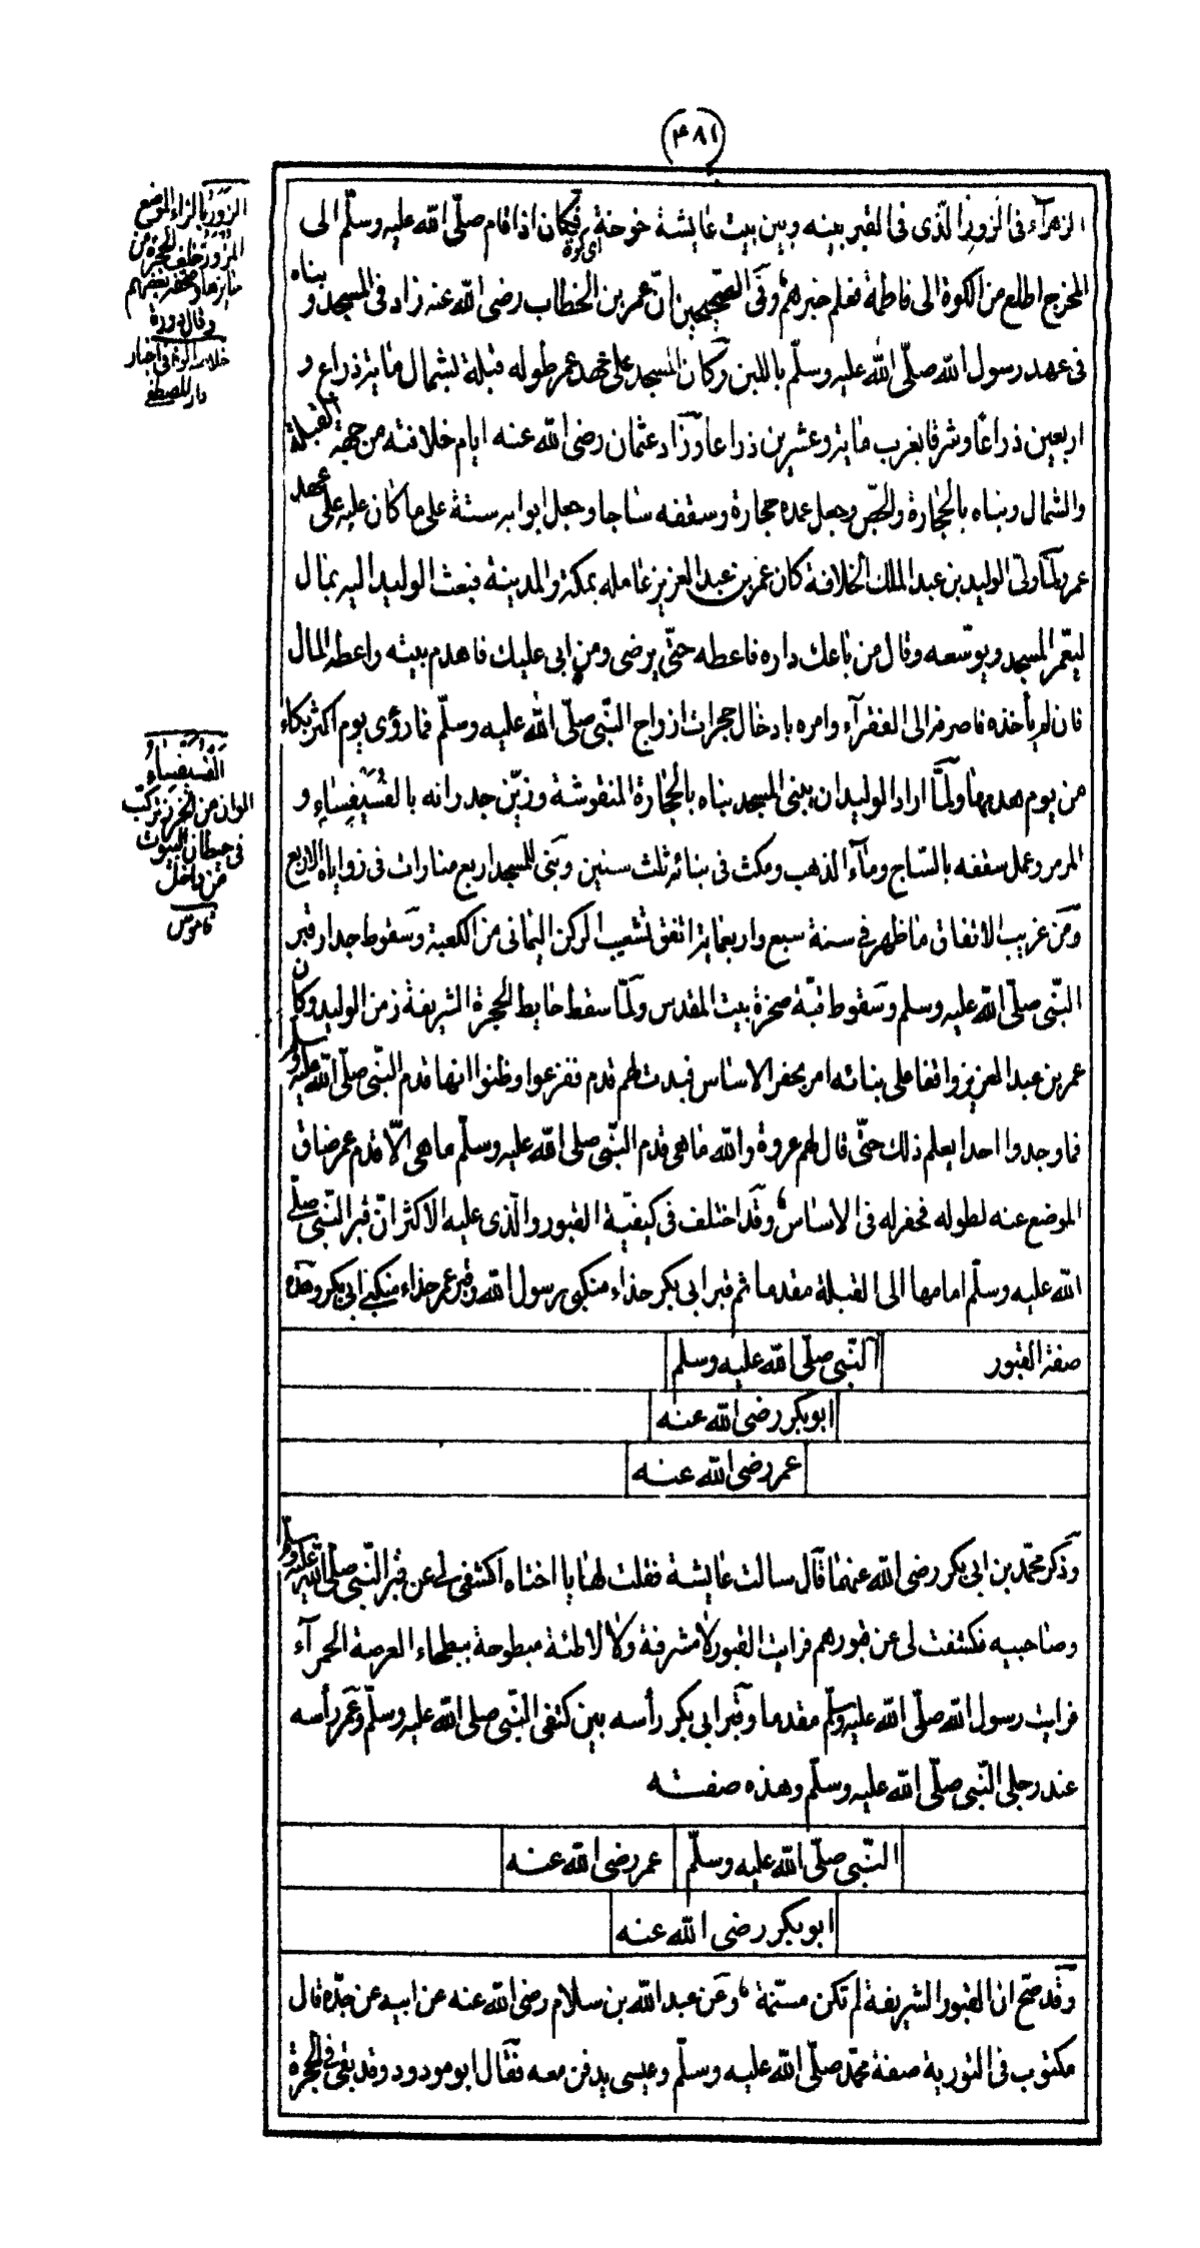 (٤٨١)
الزهرآء فى الزور الّذى فى القبر بينه وبين بيت عايشة خوخة فكان اذا قام صلّى الله عليه وسلّم الى
اى كوة
المخرج اطلع من الكوة الى فاطمة فعلم خبرهم وفى الصّحيحين انّ عمر بن الخطاب رضى الله عنه زاد فى المسجد وبناه
فى عهد رسول الله صلّى الله عليه وسلّم باللبن وكان المسجد على عهد عمر طوله قبلة لشمال مايتر ذراع و
اربعين ذراعًا وشرقا بغرب مايتر وعشرين ذراعا وزاد عثمان رضى الله عنه ايام خلافته من جهة القبلة
والشمال وبناه بالحجارة والجصّ وجعل عمده حجارة وسقفه ساجا وجعل ابوابه ستة على ما كان عليه على عهد
عمر ولمّا ولى الوليد بن عبد الملك الخلافة كان عمر بن عبد العزيز عامله بمكة والمدينة فبعث الوليد اليه بمال
ليعمّر المسجد ويوسّعه وقال من باعك داره فاعطه حتّى يرضى ومن ابى عليك فاهدم بيته واعطه المال
فان لم ياخذه فاصرفه الى الفقرآء وامره بادخال حجرات ازواج النّبى صلّى الله عليه وسلّم فما رؤى يوم اكثر بكاء
من يوم هدمها ولمّا اراد الوليد ان يبنى المسجد بناه بالحجارة المنقوشة وزيّن جدرانه بالفُسَيْفِسَاءِ و
المرمر وعمل سقفه بالسّاج ومآء الذهب ومكث فى بنائه ثلث سنين وبنى للمسجد اربع منارات فى زواياه الاربع
ومن غريب الاتفاق ما ظهر فى سنة سبع واربعمايتر اتفق تشعيب الركن اليمانى من الكعبة وسقوط جدار قبر
النّبى صلّى الله عليه وسلم وسقوط قبّة صخرة بيت المقدس ولمّا سقط حايط الحجرة الشريفة زمن الوليد وكان
عمر بن عبد العزيز واقفا على بنائه امر بحفر الاساس فبدت لهم قدم ففزعوا وظنوا انها قدم النّبى صلّى الله عليه وسلم
فما وجدوا احدا يعلم ذلك حتّى قال لهم عروة والله ما هى قدم النّبى صلى الله عليه وسلّم ما هى الّا قدم عمر ضاق
الموضع عنه لطوله فحفر له فى الاساس وقد اختلف فى كيفيّة القبور والّذى عليه الاكثر انّ قبر النّبى صلّى
الله عليه وسلّم امامها الى القبلة مقدما ثم قبر ابى بكر حذاء منكبى رسول الله وقبر عمر حذاء منكبى ابى بكر وهذه
صفة القبور
النّبى صلّى الله عليه وسلم
ابو بكر رضى الله عنه
عمر رضى الله عنه
وذكر محمّد بن ابى بكر رضى الله عنهما قال سالت عايشة فقلت لها يا اختاه اكشفى لى عن قبر النّبى صلّى الله عليه وسلم
وصاحبيه فكشفت لى عن قبورهم فرايت القبور لا مشرفة ولا لاطئة مبطوحة ببطحاء العرصة الحمرآء
فرايت رسول الله صلّى الله عليه وسلّم مقدما وقبر ابى بكر رأسه بين كتفى النّبى صلى الله عليه وسلّم وعمر رأسه
عند رجلى النّبى صلّى الله عليه وسلّم وهذه صفته
النّبى صلّى الله عليه وسلّم
عمر رضى الله عنه
ابو بكر رضى الله عنه
وقد صحّ ان القبور الشريفة لم تكن مسنّمة وعن عبد الله بن سلام رضى الله عنه عن ابيه عن جدّه قال
مكتوب فى التورية صفة محمّد صلّى الله عليه وسلّم وعيسى يدفن معه فقال ابو مودود وقد بقى فى الحجرة
الزور بالزاء الموضع
المزور خلف الحجرة من
وقال دورة
خلاصة الوفا فى اخبار
دار المصطفى
الفُسَيْفِسَاءُ
الوان من الخرز يركب
فى حيطان البيوت
من داخل
قاموس